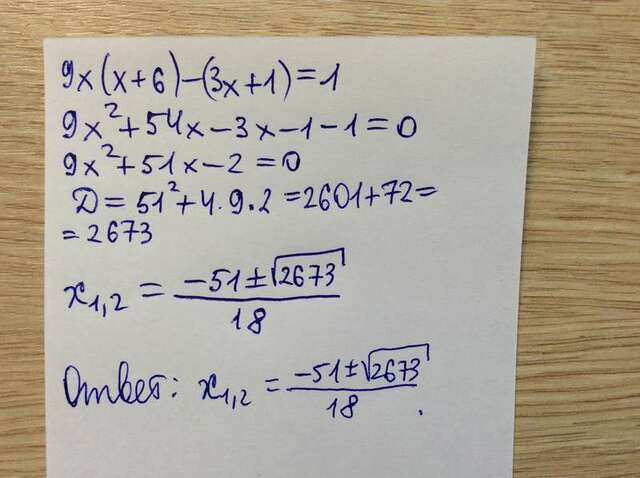 9x(x+6)-(3x+1)=1
9x²+54x-3x-1-1=0
9x²+51x-2=0
D=51²+4·9·2=2601+72=
=2673
x₁,₂ = (-51±√2673)/18
Ответ: x₁,₂ = (-51±√2673)/18.